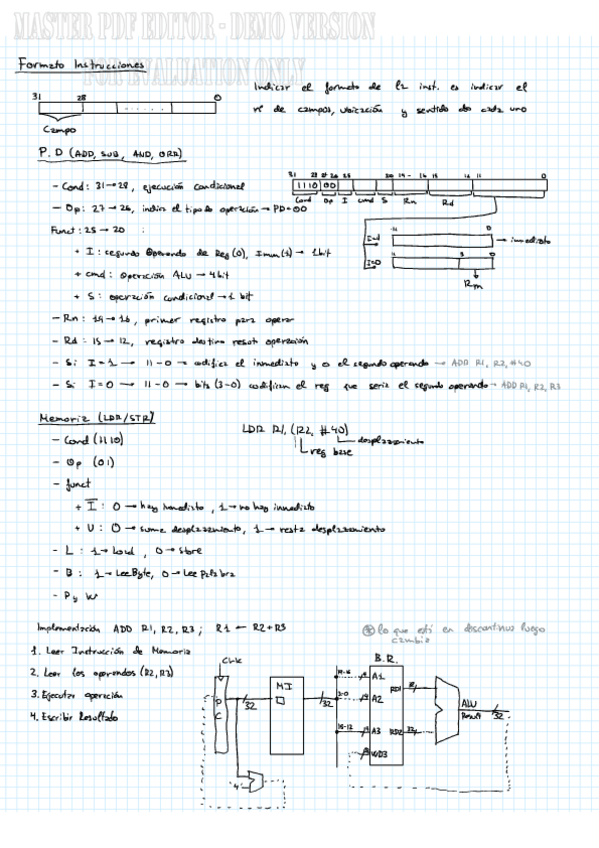 MASTER PDF EDITOR - DEMO VERSION
FOR EVALUATION ONLY
Formato Instrucciones
31 28 0
Campo
Indicar el formato de la inst. es indicar el
nº de campos, ubicación y sentido de cada uno
P.D (ADD, SUB, AND, ORR)
- Cond: 31→28, ejecución condicional
- Op: 27→26, indica el tipo de operación → PD=00
Funct: 25→20 :
+ I: segundo Operando de Reg (0), Imm (1) → 1 bit
+ cmd: Operación ALU → 4 bit
+ S: operación condicional → 1 bit
- Rn: 19→16, primer registro para operar
- Rd: 15→12, registro destino result operación
- Si I=1 → 11-0 → codifica el inmediato y es el segundo operando → ADD R1, R2, #40
- Si I=0 → 11-0 → bits (3-0) codifican el reg que sería el segundo operando → ADD R1, R2, R3
31 28 27 26 25 20 19 - 16 15 12 11 0
1110 00
Cond Op I cmd S Rn Rd
I=1 11 0 → inmediato
I=0 11 3 0
Rm
Memoria (LDR/STR)
- Cond (1110)
- Op (01)
- funct
+ I̅: 0 → hay inmediato, 1 → no hay inmediato
+ U: 0 → suma desplazamiento, 1 → resta desplazamiento
- L: 1 → Load, 0 → Store
- B: 1 → Lee Byte, 0 → Lee Palabra
- P y W
LDR R1, (R2, #40)
desplazamiento
reg base
Implementación ADD R1, R2, R3; R1 ← R2+R3
1. Leer Instrucción de Memoria
2. Leer los operandos (R2, R3)
3. Ejecutar operación
4. Escribir Resultado
* lo que está en discontinuo luego
cambia
B.R.
Clk
PC
32
MI
32
19-16
A1
RD1
32
3-0
A2
15-12
A3
RD2
32
WD3
ALU
Result
32
4